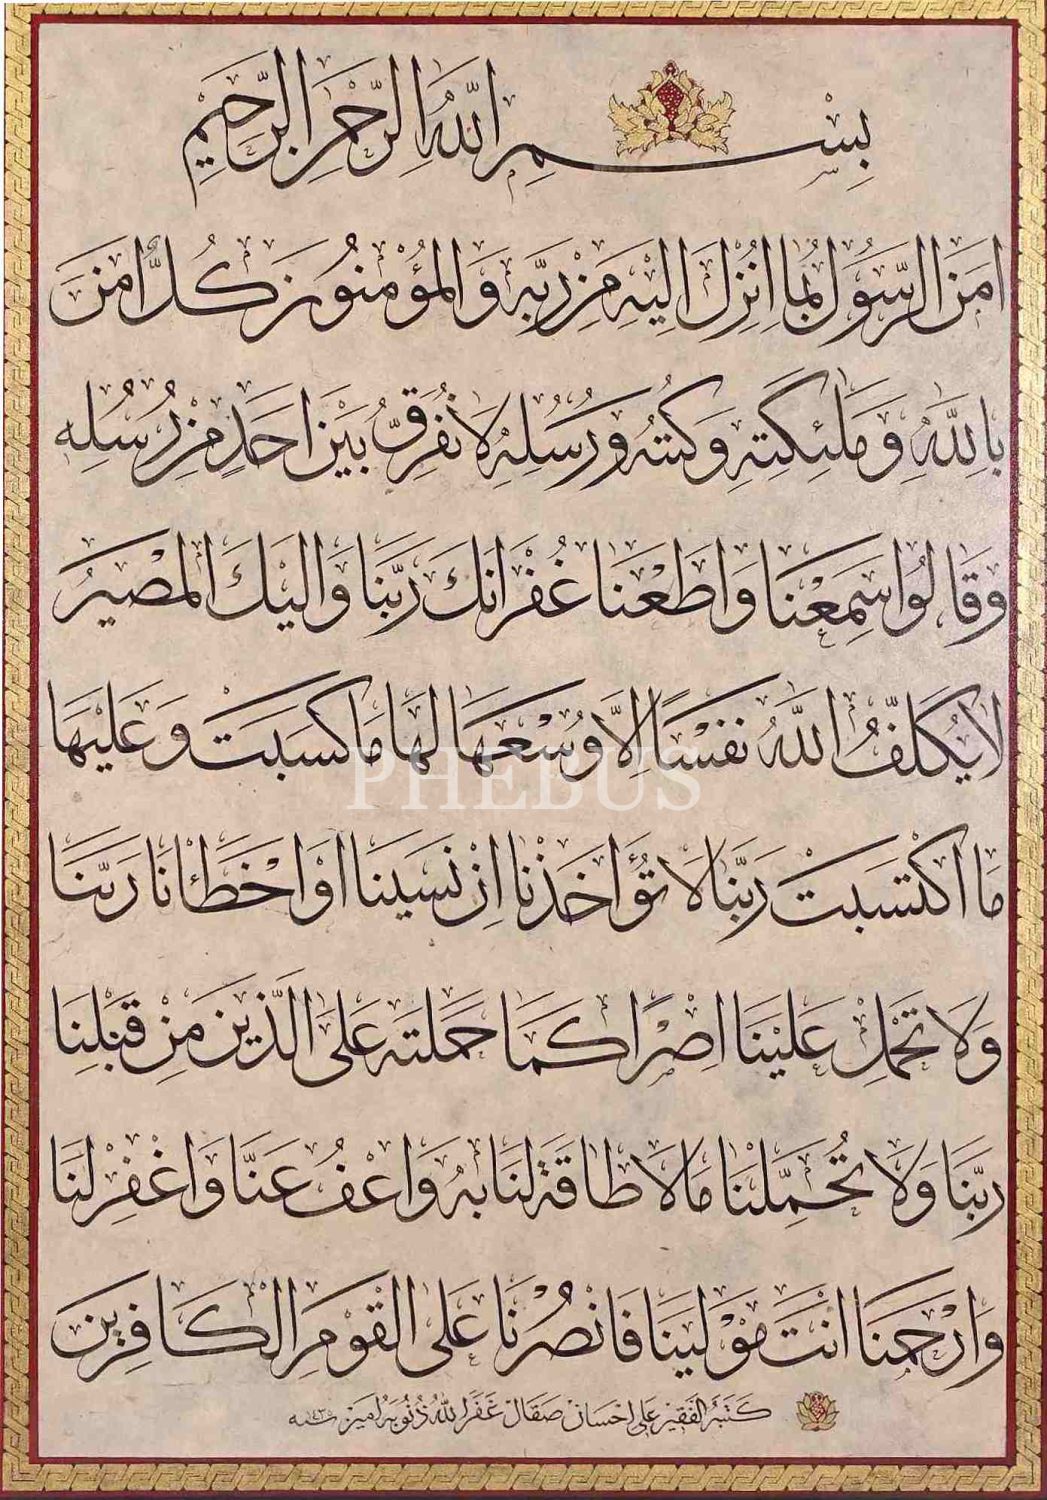 بِسْمِ اللّٰهِ الرَّحْمٰنِ الرَّحِيمِ
اٰمَنَ الرَّسُولُ بِمَا اُنْزِلَ اِلَيْهِ مِنْ رَبِّهِ وَالْمُؤْمِنُونَ كُلٌّ اٰمَنَ
بِاللّٰهِ وَمَلٰئِكَتِهِ وَكُتُبِهِ وَرُسُلِهِ لَا نُفَرِّقُ بَيْنَ اَحَدٍ مِنْ رُسُلِهِ
وَقَالُوا سَمِعْنَا وَاَطَعْنَا غُفْرَانَكَ رَبَّنَا وَاِلَيْكَ الْمَصِيرُ
لَا يُكَلِّفُ اللّٰهُ نَفْسًا اِلَّا وُسْعَهَا لَهَا مَا كَسَبَتْ وَعَلَيْهَا
مَا اكْتَسَبَتْ رَبَّنَا لَا تُؤَاخِذْنَا اِنْ نَسِينَا اَوْ اَخْطَاْنَا رَبَّنَا
وَلَا تَحْمِلْ عَلَيْنَا اِصْرًا كَمَا حَمَلْتَهُ عَلَى الَّذِينَ مِنْ قَبْلِنَا
رَبَّنَا وَلَا تُحَمِّلْنَا مَا لَا طَاقَةَ لَنَا بِهِ وَاعْفُ عَنَّا وَاغْفِرْ لَنَا
وَارْحَمْنَا اَنْتَ مَوْلٰينَا فَانْصُرْنَا عَلَى الْقَوْمِ الْكَافِرِينَ
كَتَبَهُ الْفَقِيرُ عَلِي اِحْسَانْ صَقَالْ غَفَرَ اللّٰهُ ذُنُوبَهُ اٰمِينْ
PHEBUS